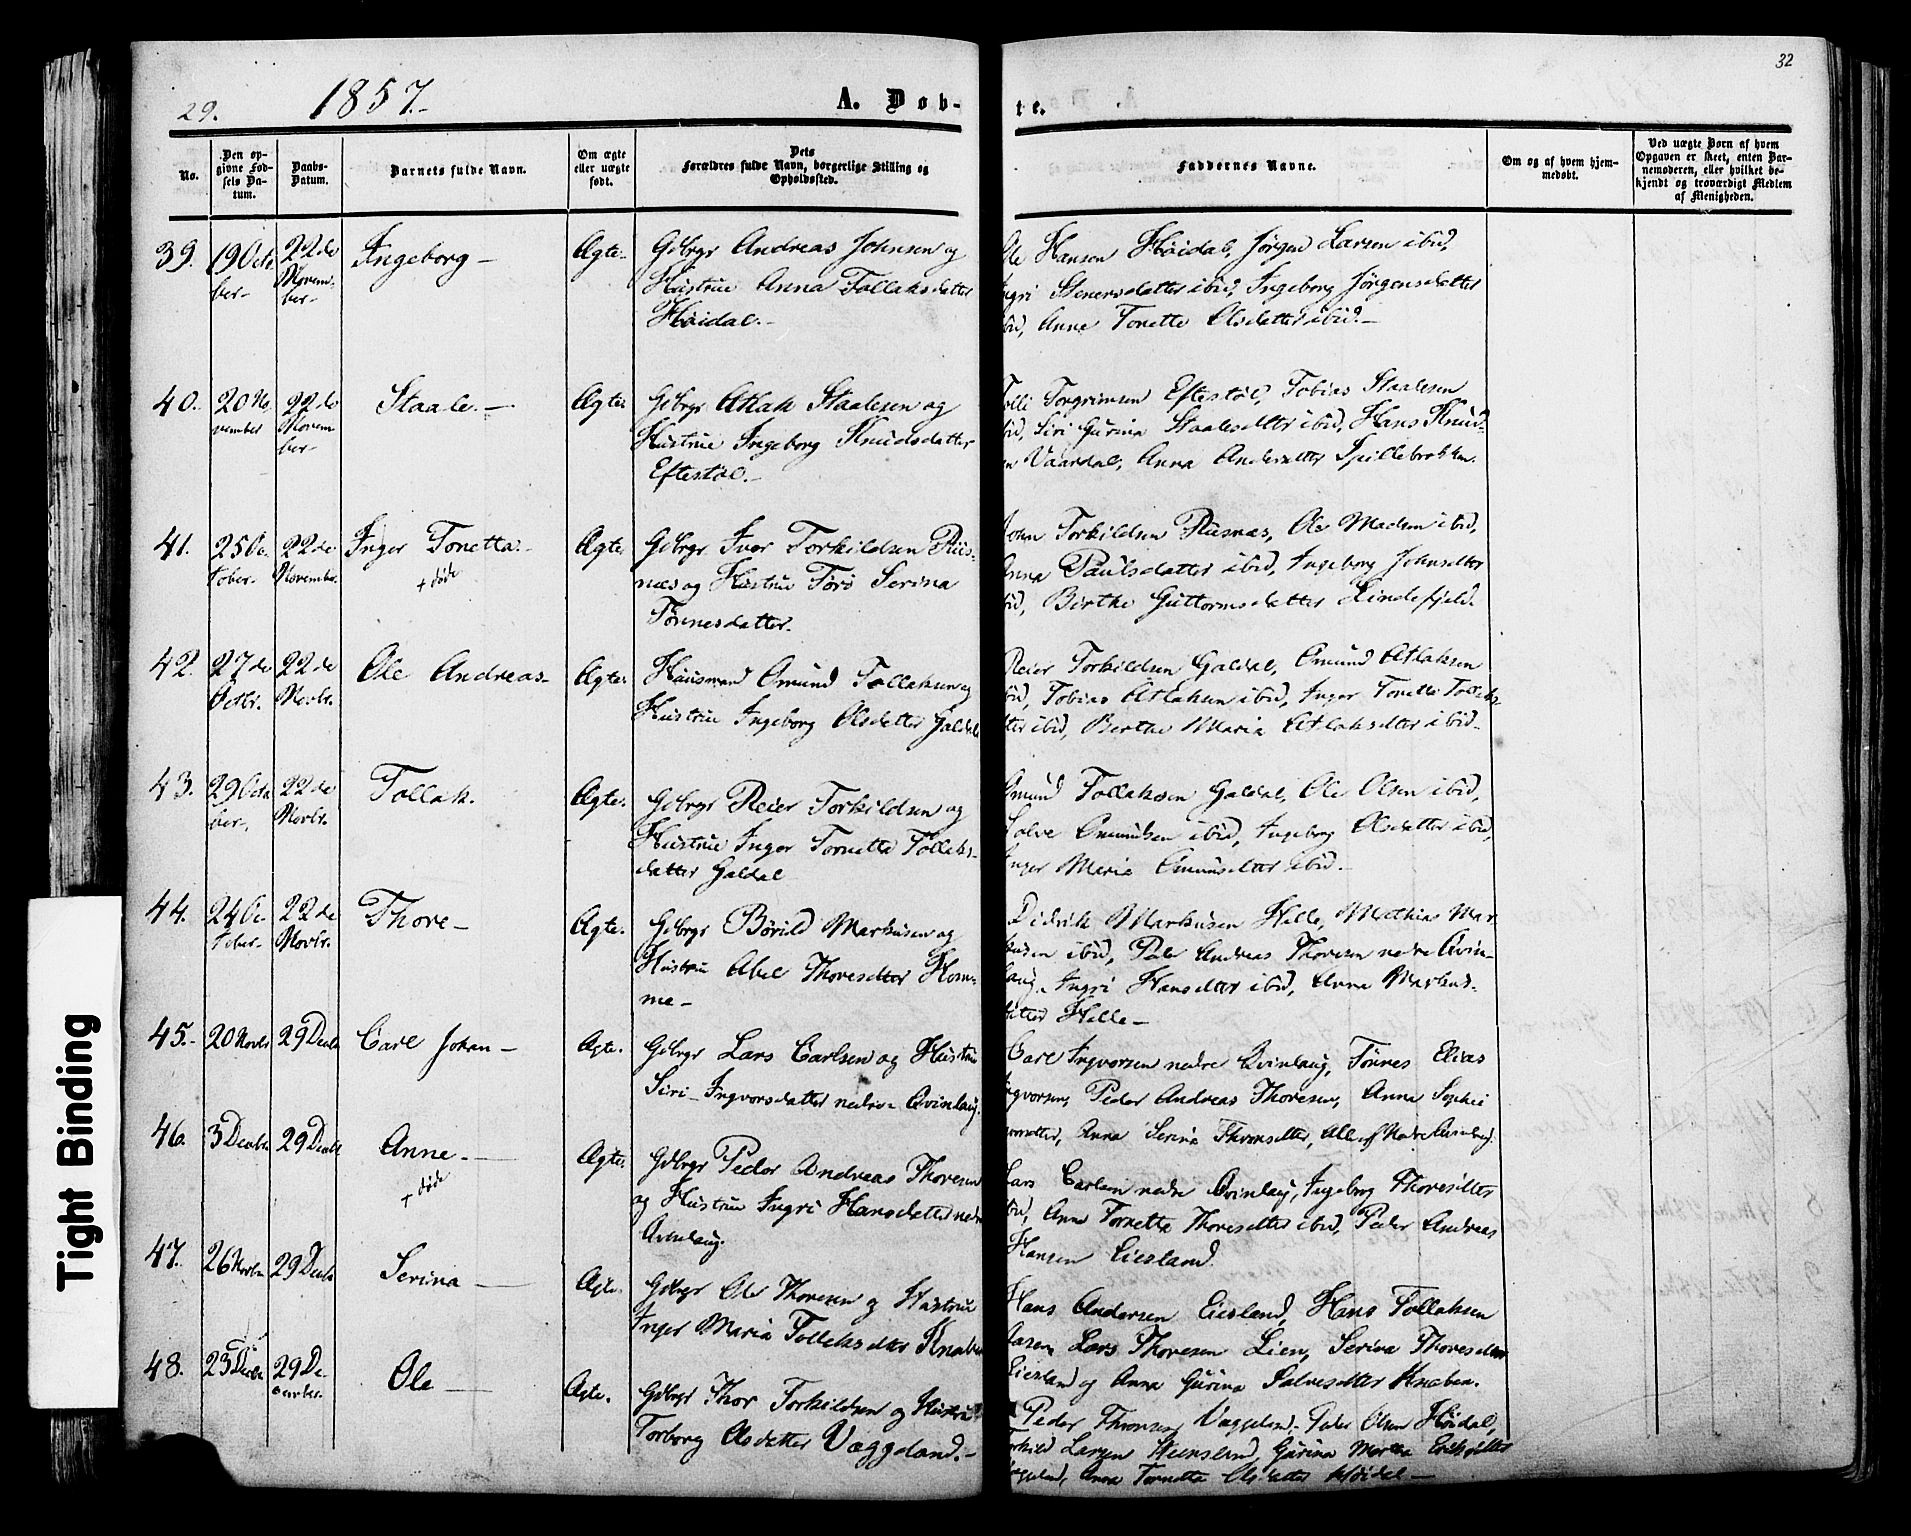 29.
1857.-
A. Døb-
te.
32
No.
Den op-
givne Fød-
sels Da-
tum.
Daabs-
Datum.
Barnets fulde Navn.
Om ægte
eller uægte
født.
Dets
Forældres fulde Navn, borgerlige Stilling og
Opholdssted.
Faddernes Navne.
Om og af hvem hjem-
medøbt.
Ved uægte Børn af hvem
Opgaven er skeet, enten Bar-
nemoderen, eller hvilket be-
kjendt og troværdigt Medlem
af Menigheden.
39. 19 Octo- 22de Ingeborg- Ægte- Gdbrgr Andreas Johnsen og
ber- Novem- Hustrue Anna Tollaksdatter
ber- Høidal.-
Ole Hansen Høidal, Jørgen Larsen ibid,
Ingri Stenersdatter ibid, Ingeborg Jørgensdatter
ibid, Anne Tonette Olsdatter ibid.-
40. 20 No- 22de Staale.- Ægte. Gdbrgr Atlak Staalesen og
vember Novem- Hustrue Ingeborg Knudsdatter
ber- Eftestøl.-
Torgrimsen Eftestøl, Tobias Staalesen
ibid, Siri Gurina Staalesdtter ibid, Hans Knud-
sen Vaardal, Anna Andersdtter Spillebrokken.
41. 25 Oc- 22de Inger Tonetta- Ægte Gdbrgr Iver Torkildsen Riis-
tober- November. + døde næs og Hustrue Siri Serina
Tønnesdatter.
Torkildsen Riisnæs, Ole Madsen ibid,
Anna Paulsdatter ibid, Ingeborg Johnsdtter
ibid, Birthe Guttormsdatter Lindefjeld.
42. 27de 22de Ole Andreas- Ægte. Huusmand Omund Tollaksen og
Octbr. Novbr. Hustrue Ingeborg Olsdatter Galdal
Reier Torkildsen Galdal, Omund Atlaksen
ibid, Tobias Atlaksen ibid, Inger Tonette Tollaks-
dtter ibid, Berthe Maria Atlaksdtter ibid-
43. 29 Octo- 22de Tollak. Ægte. Gdbrgr Reier Torkildsen og
ber, Novbr. Hustrue Inger Tornetta Tollaks-
datter Galdal
Omund Tollaksen Galdal, Ole Olsen ibid,
Salve Omundsen ibid, Ingeborg Olsdatter ibid,
Inger Maria Omundsdtter ibid.-
44. 24 Oc- 22de Thore- Ægte. Gdbrgr Børild Markusen og
tober- Novbr. Hustru Abel Thoresdtter Hom-
me-
Didrik Markusen Helle, Mathias Mar-
kusen ibid, Peder Andreas Thoresen nedre Qvin-
laug, Ingri Hansdtter ibid, Anna Markus-
dtter Helle-
45.- 20 Novbr 29 Decbr Carl Johan- Ægte. Gdbrgr Lars Carlsen og Hustru
Siri Ingvorsdatter nedre Qvinlaug.
Carl Ingvorsen nedre Qvinlaug, Tønnes Elias
Ingvorsen, Peder Andreas Thoresen, Anna Sophie
Anna Serina Thoresdtter, Alle af Nedre Qvinlaug.
46. 3 Decbr 29 Decbr Anne.- Ægte. Gdbrgr Peder Andreas Thoresen
+ døde og Hustrue Ingri Hansdatter nedre
Qvinlaug.
Lars Carlsen nedre Qvinlaug, Ingeborg Thoresdtter
ibid, Anne Tornetta Thoresdtter ibid, Peder Andreas
Hansen Eiesland.
47. 26 Novbr 29 Decbr Serina- Ægte. Gdbrgr Ole Thoresen og Hustrue
Inger Maria Tollaksdtter Knaben
Hans Andersen Eiesland, Hans Tollaksen
Lars Thoresen Lien, Serina Thoresdtter
Eiesland og Anna Gurina Salvesdtter Knaben.
48. 23 Decbr 29 De- Ole- Ægte. Gdbrgr Thor Torkildsen og Hustrue
cember. Torborg Olsdatter Væggeland.-
Peder Peder Olsen Høidal,
Torkild Larsen Gurina
Anna Tornetta Olsdatter Høidal-
Tight Binding